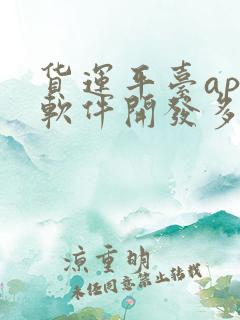 货運平臺ap
軟件開發多
凉重明
未经同意禁止转载